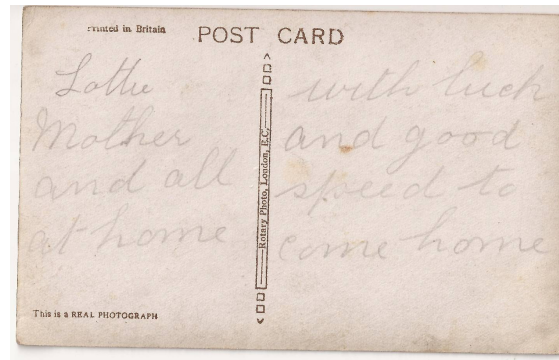 Printed in Britain
POST CARD
Lottie
Mother
and all
at home
Rotary Photo, London, E.C.
with luck
and good
speed to
come home
This is a REAL PHOTOGRAPH